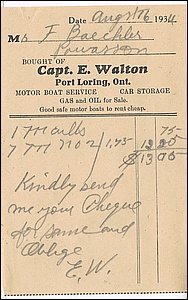 Date Aug 17th 1934
M F Baechler
Powassan
BOUGHT OF
Capt. E. Walton
Port Loring, Ont.
MOTOR BOAT SERVICE CAR STORAGE
GAS and OIL for Sale.
Good safe motor boats to rent cheap.
1 M culls 75
7 M no 2 1.75
$13.00
Kindly send
me your Cheque
for same and
Oblige
E. W.